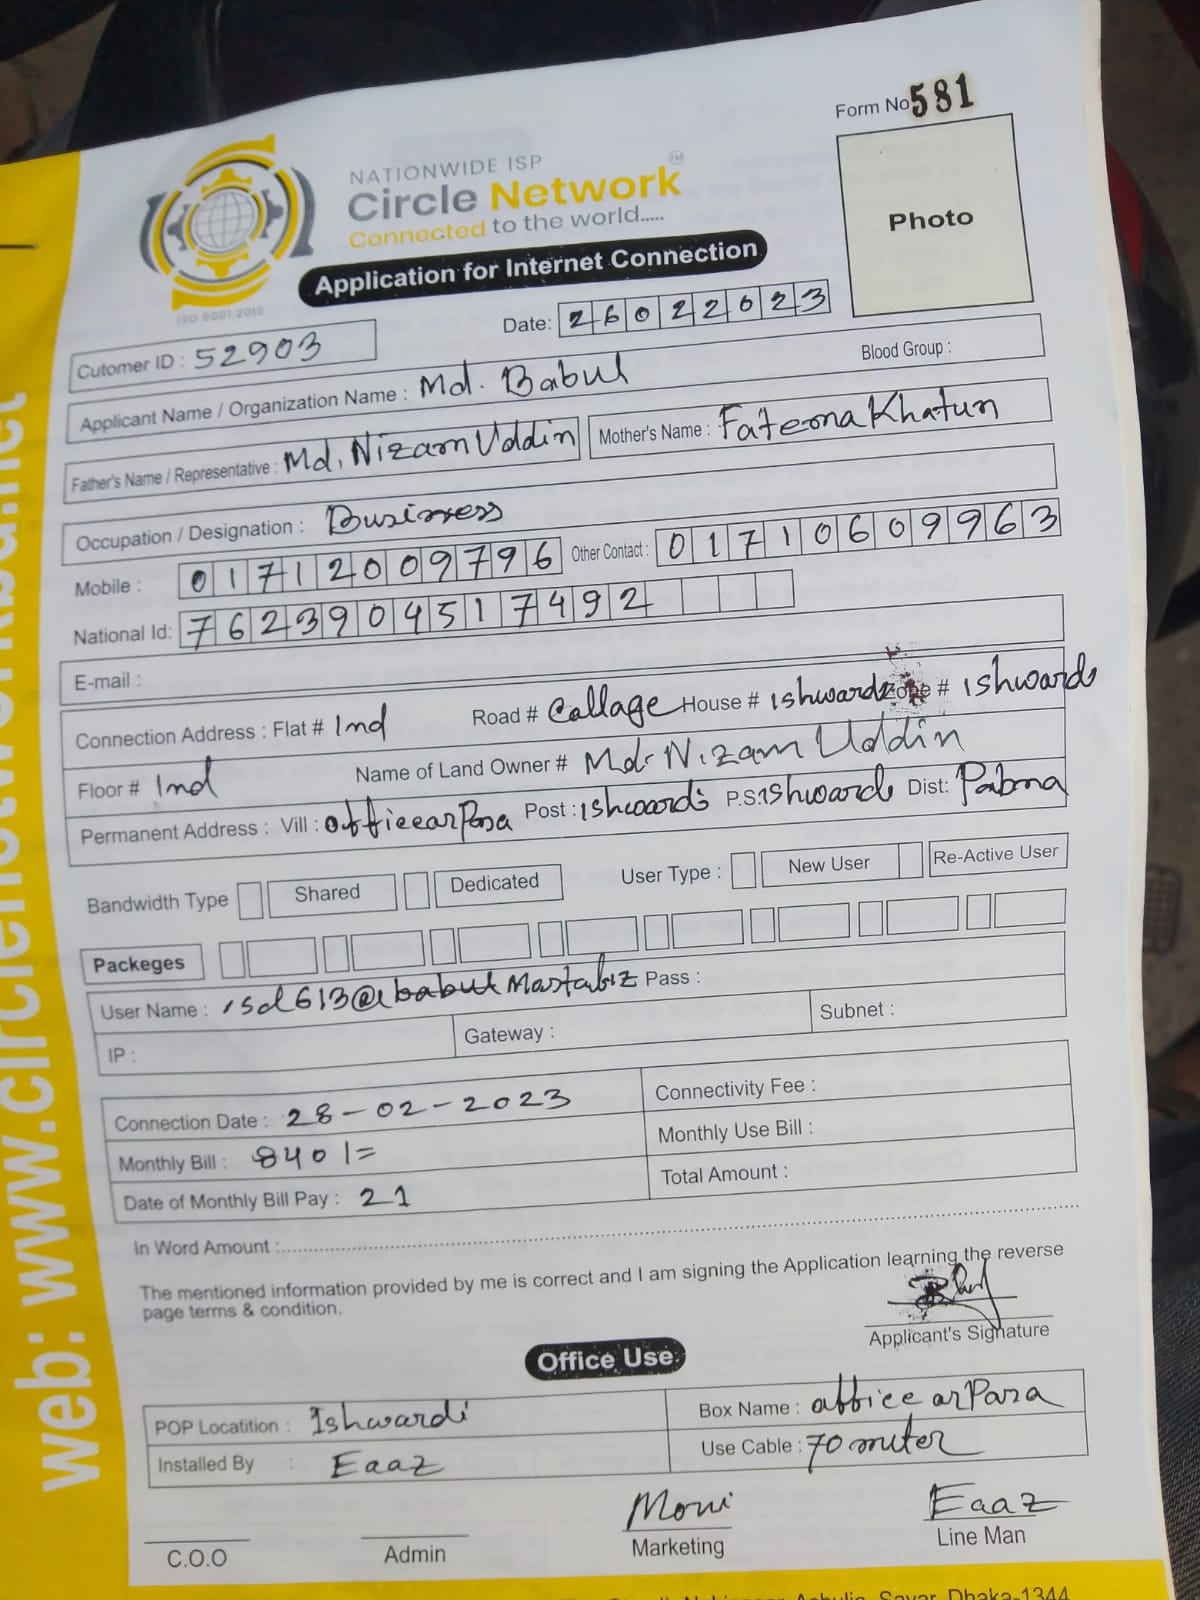 Form No 581
NATIONWIDE ISP
Circle Network TM
Connected to the world.....
Photo
Application for Internet Connection
ISO 9001:2015
Date: 26022023
Cutomer ID : 52903
Applicant Name / Organization Name : Md. Babul Blood Group :
Father's Name / Representative : Md. Nizam Uddin Mother's Name : Fatema Khatun
Occupation / Designation : Business
Mobile : 01712009796 Other Contact : 01710609963
National Id: 7623904517492
E-mail :
Connection Address : Flat # Ind Road # Collage House # ishwardi Zone # ishwardi
Floor # Ind Name of Land Owner # Md. Nizam Uddin
Permanent Address : Vill : officearPara Post : ishwardi P.S: ishwardi Dist: Pabna
Bandwidth Type Shared Dedicated User Type : New User Re-Active User
Packeges
User Name : isd613@ Pass :
IP : Gateway : Subnet :
Connection Date : 28-02-2023 Connectivity Fee :
Monthly Bill : 840/= Monthly Use Bill :
Date of Monthly Bill Pay : 21 Total Amount :
In Word Amount :
The mentioned information provided by me is correct and I am signing the Application learning the reverse
page terms & condition.
Applicant's Signature
Office Use
POP Locatition : Ishwardi Box Name : officearPara
Installed By : Eaaz Use Cable : 70 miter
C.O.O Admin Moni Marketing Eaaz Line Man
Savar, Dhaka-1344
web: www.circlenetworkbd.net